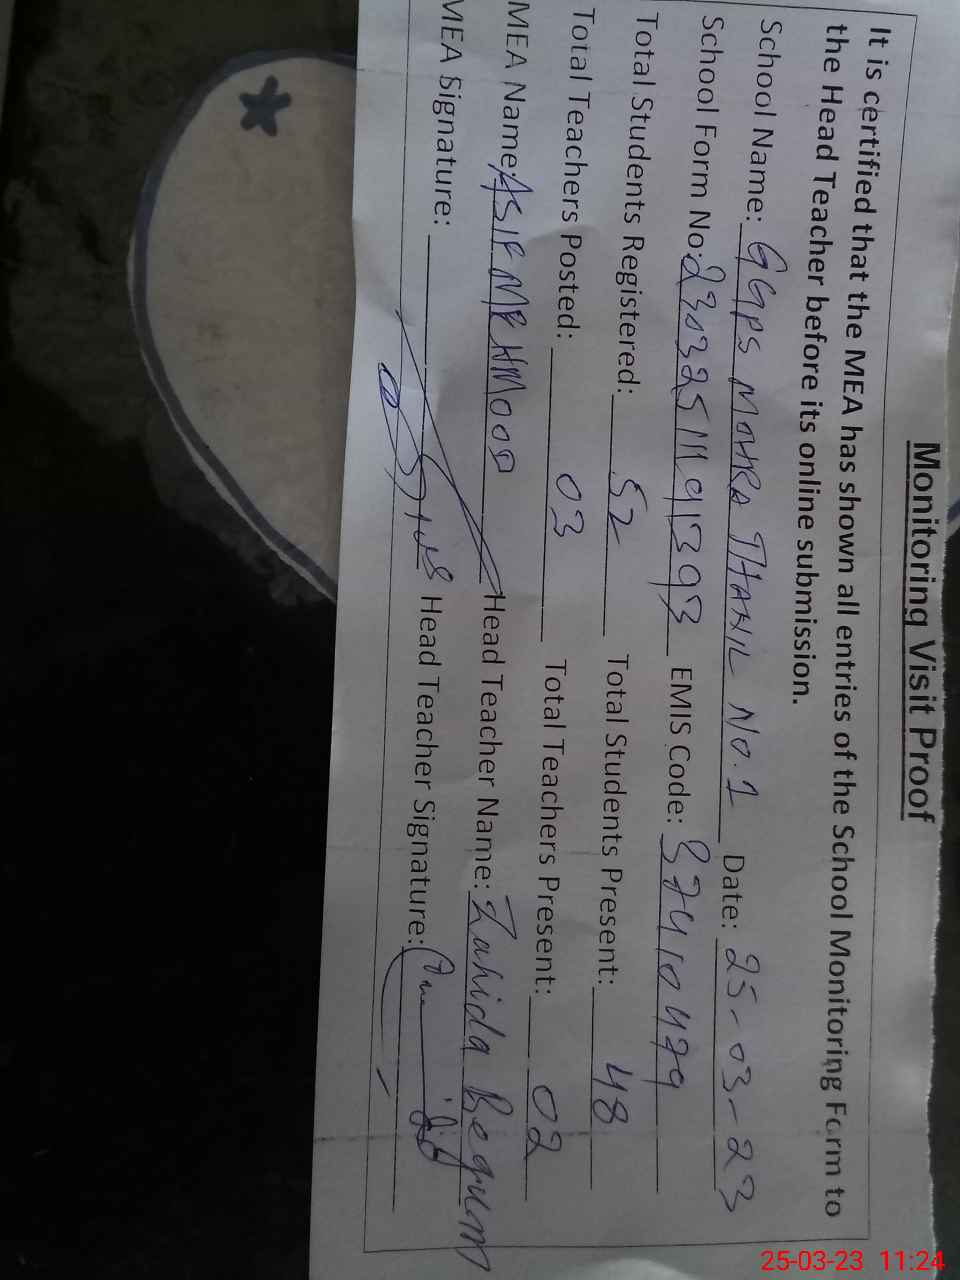 Monitoring Visit Proof
It is certified that the MEA has shown all entries of the School Monitoring Form to
the Head Teacher before its online submission.
School Name: GGPS MOHRA THAHIL NO.1 Date: 25-03-23
School Form No: EMIS Code: 37410479
Total Students Registered: 52 Total Students Present: 48
Total Teachers Posted: 03 Total Teachers Present: 02
MEA Name: ASIF MEHMOOD Head Teacher Name: Zahida Begum
MEA Signature: Head Teacher Signature:
25-03-23 11:24